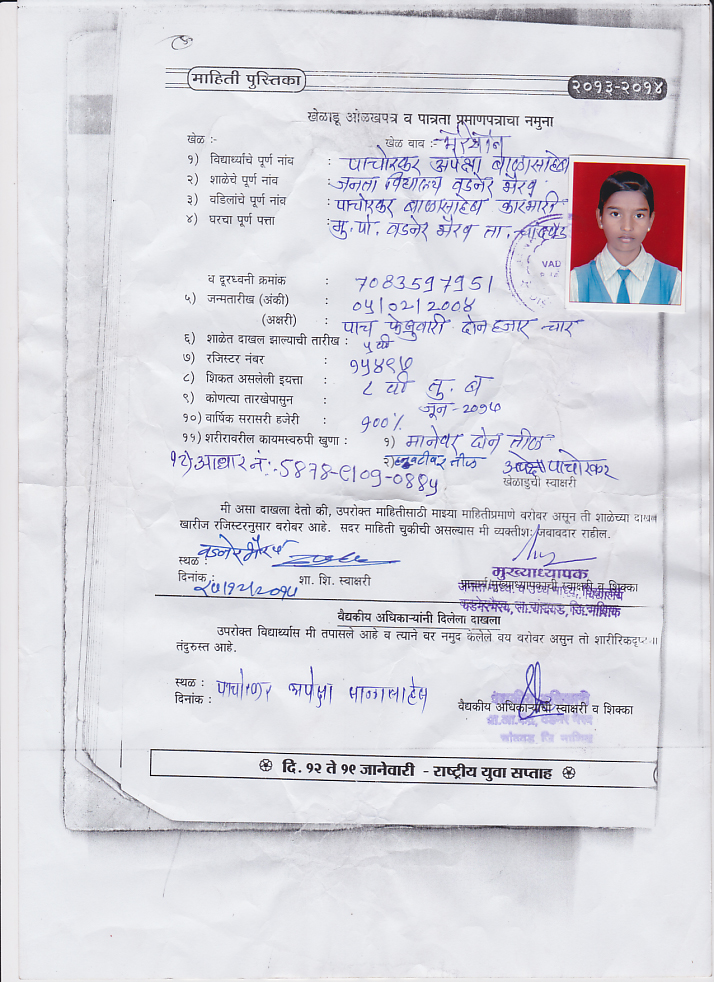 माहिती पुस्तिका
२०१३-२०१४
खेळाडू ओळखपत्र व पात्रता प्रमाणपत्राचा नमुना
खेळ :-
खेळ बाब :-
१) विद्यार्थ्याचे पूर्ण नांव : पाचोरकर अपेक्षा बाळासाहेब
२) शाळेचे पूर्ण नांव : जनता विद्यालय वडनेर भैरव
३) वडिलांचे पूर्ण नांव : पाचोरकर बाळासाहेब कारभारी
४) घरचा पूर्ण पत्ता : मु.पो. वडनेर भैरव ता. चांदवड
VAD
व दूरध्वनी क्रमांक : 7083597951
५) जन्मतारीख (अंकी) : ०५/०२/२००४
(अक्षरी) : पाच फेब्रुवारी दोन हजार चार
६) शाळेत दाखल झाल्याची तारीख : ५ वी
७) रजिस्टर नंबर :
८) शिकत असलेली इयत्ता : ८ वी तु. ब
९) कोणत्या तारखेपासुन : जून - २०१७
१०) वार्षिक सरासरी हजेरी : १००%
११) शरीरावरील कायमस्वरुपी खुणा : १) मानेवर दोन तीळ
२) हनुवटीवर तीळ
अपेक्षा पाचोरकर
खेळाडुची स्वाक्षरी
१२) आधार नं:- 5878-9109-0885
मी असा दाखला देतो की, उपरोक्त माहितीसाठी माझ्या माहितीप्रमाणे बरोबर असून ती शाळेच्या दाखल
खारीज रजिस्टरनुसार बरोबर आहे. सदर माहिती चुकीची असल्यास मी व्यक्तीश: जबाबदार राहील.
स्थळ : वडनेरभैरव
दिनांक :
शा. शि. स्वाक्षरी
मुख्याध्यापक
प्राचार्य/मुख्याध्यापकाची स्वाक्षरी व शिक्का
जनता माध्य. व उच्च माध्य. विद्यालय
वडनेरभैरव, ता. चांदवड, जि. नाशिक
वैद्यकीय अधिकाऱ्यांनी दिलेला दाखला
उपरोक्त विद्यार्थ्यास मी तपासले आहे व त्याने वर नमुद केलेले वय बरोबर असुन तो शारीरिकदृष्ट्या
तंदुरुस्त आहे.
स्थळ : पाचोरकर अपेक्षा बाळासाहेब
दिनांक :
वैद्यकीय अधिकाऱ्यांची स्वाक्षरी व शिक्का
दि. १२ ते १९ जानेवारी - राष्ट्रीय युवा सप्ताह